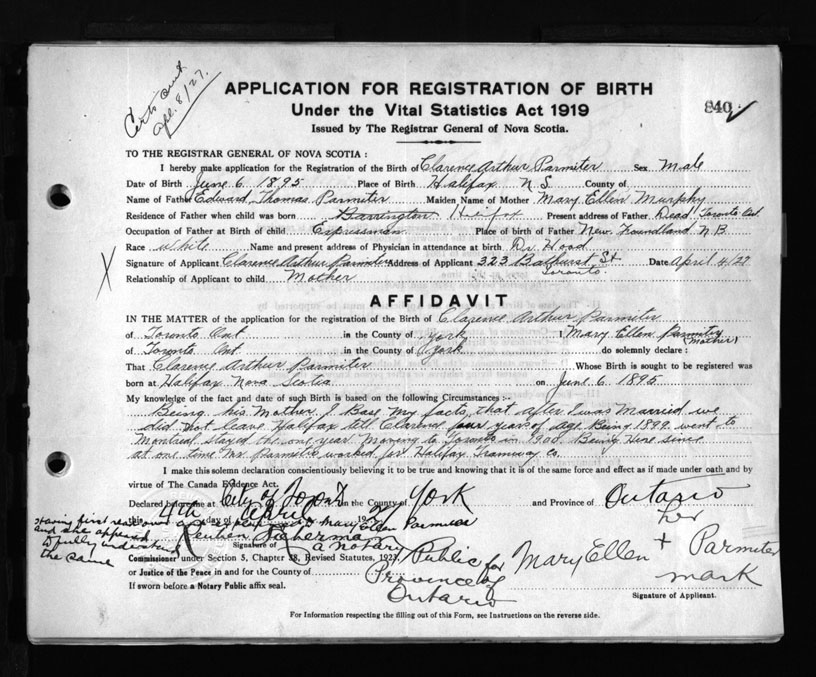 Certs Oent
Apl. 8/27.
APPLICATION FOR REGISTRATION OF BIRTH
Under the Vital Statistics Act 1919
840
Issued by The Registrar General of Nova Scotia.
TO THE REGISTRAR GENERAL OF NOVA SCOTIA :
I hereby make application for the Registration of the Birth of Clarence Arthur Parmiter Sex Male
Date of Birth June 6 1895 Place of Birth Halifax N S County of
Name of Father Edward Thomas Parmiter Maiden Name of Mother Mary Ellen Murphy
Residence of Father when child was born Barrington Present address of Father Dead Toronto Ont
Occupation of Father at Birth of child Expressman Place of birth of Father New Foundland N B
Race White Name and present address of Physician in attendance at birth Dr Hood
Signature of Applicant Clarence Arthur Parmiter Address of Applicant 323 Bathurst St Date April 4/27
Toronto
Relationship of Applicant to child Mother
AFFIDAVIT
IN THE MATTER of the application for the registration of the Birth of Clarence Arthur Parmiter
of Toronto Ont in the County of York Mary Ellen Parmiter
(Mother)
of Toronto Ont in the County of York do solemnly declare :
That Clarence Arthur Parmiter Whose Birth is sought to be registered was
born at Halifax Nova Scotia on June 6 1895
My knowledge of the fact and date of such Birth is based on the following Circumstances :-
Being his Mother I Base My facts, that after I was Married we
did not leave Halifax till Clarence four years of age Being 1899 went to
Montreal stayed there one year Moveing to Toronto in 1900. Being Here since
at one time Mr Parmiter worked for Halifax Tramway Co.
I make this solemn declaration conscientiously believing it to be true and knowing that it is of the same force and effect as if made under oath and by
virtue of The Canada Evidence Act.
Declared before me at City of Toronto in the County of York and Province of Ontario
this 4th day of April 1927
Having first read over and explained to Mary Ellen Parmiter
and she appeared
to fully understand
the same
Reuben
Signature of
a Notary Public for
Province of
Ontario
Commissioner under Section 5, Chapter 38, Revised Statutes, 1923
or Justice of the Peace in and for the County of
If sworn before a Notary Public affix seal.
her
Mary Ellen + Parmiter
mark
Signature of Applicant.
For Information respecting the filling out of this Form, see Instructions on the reverse side.